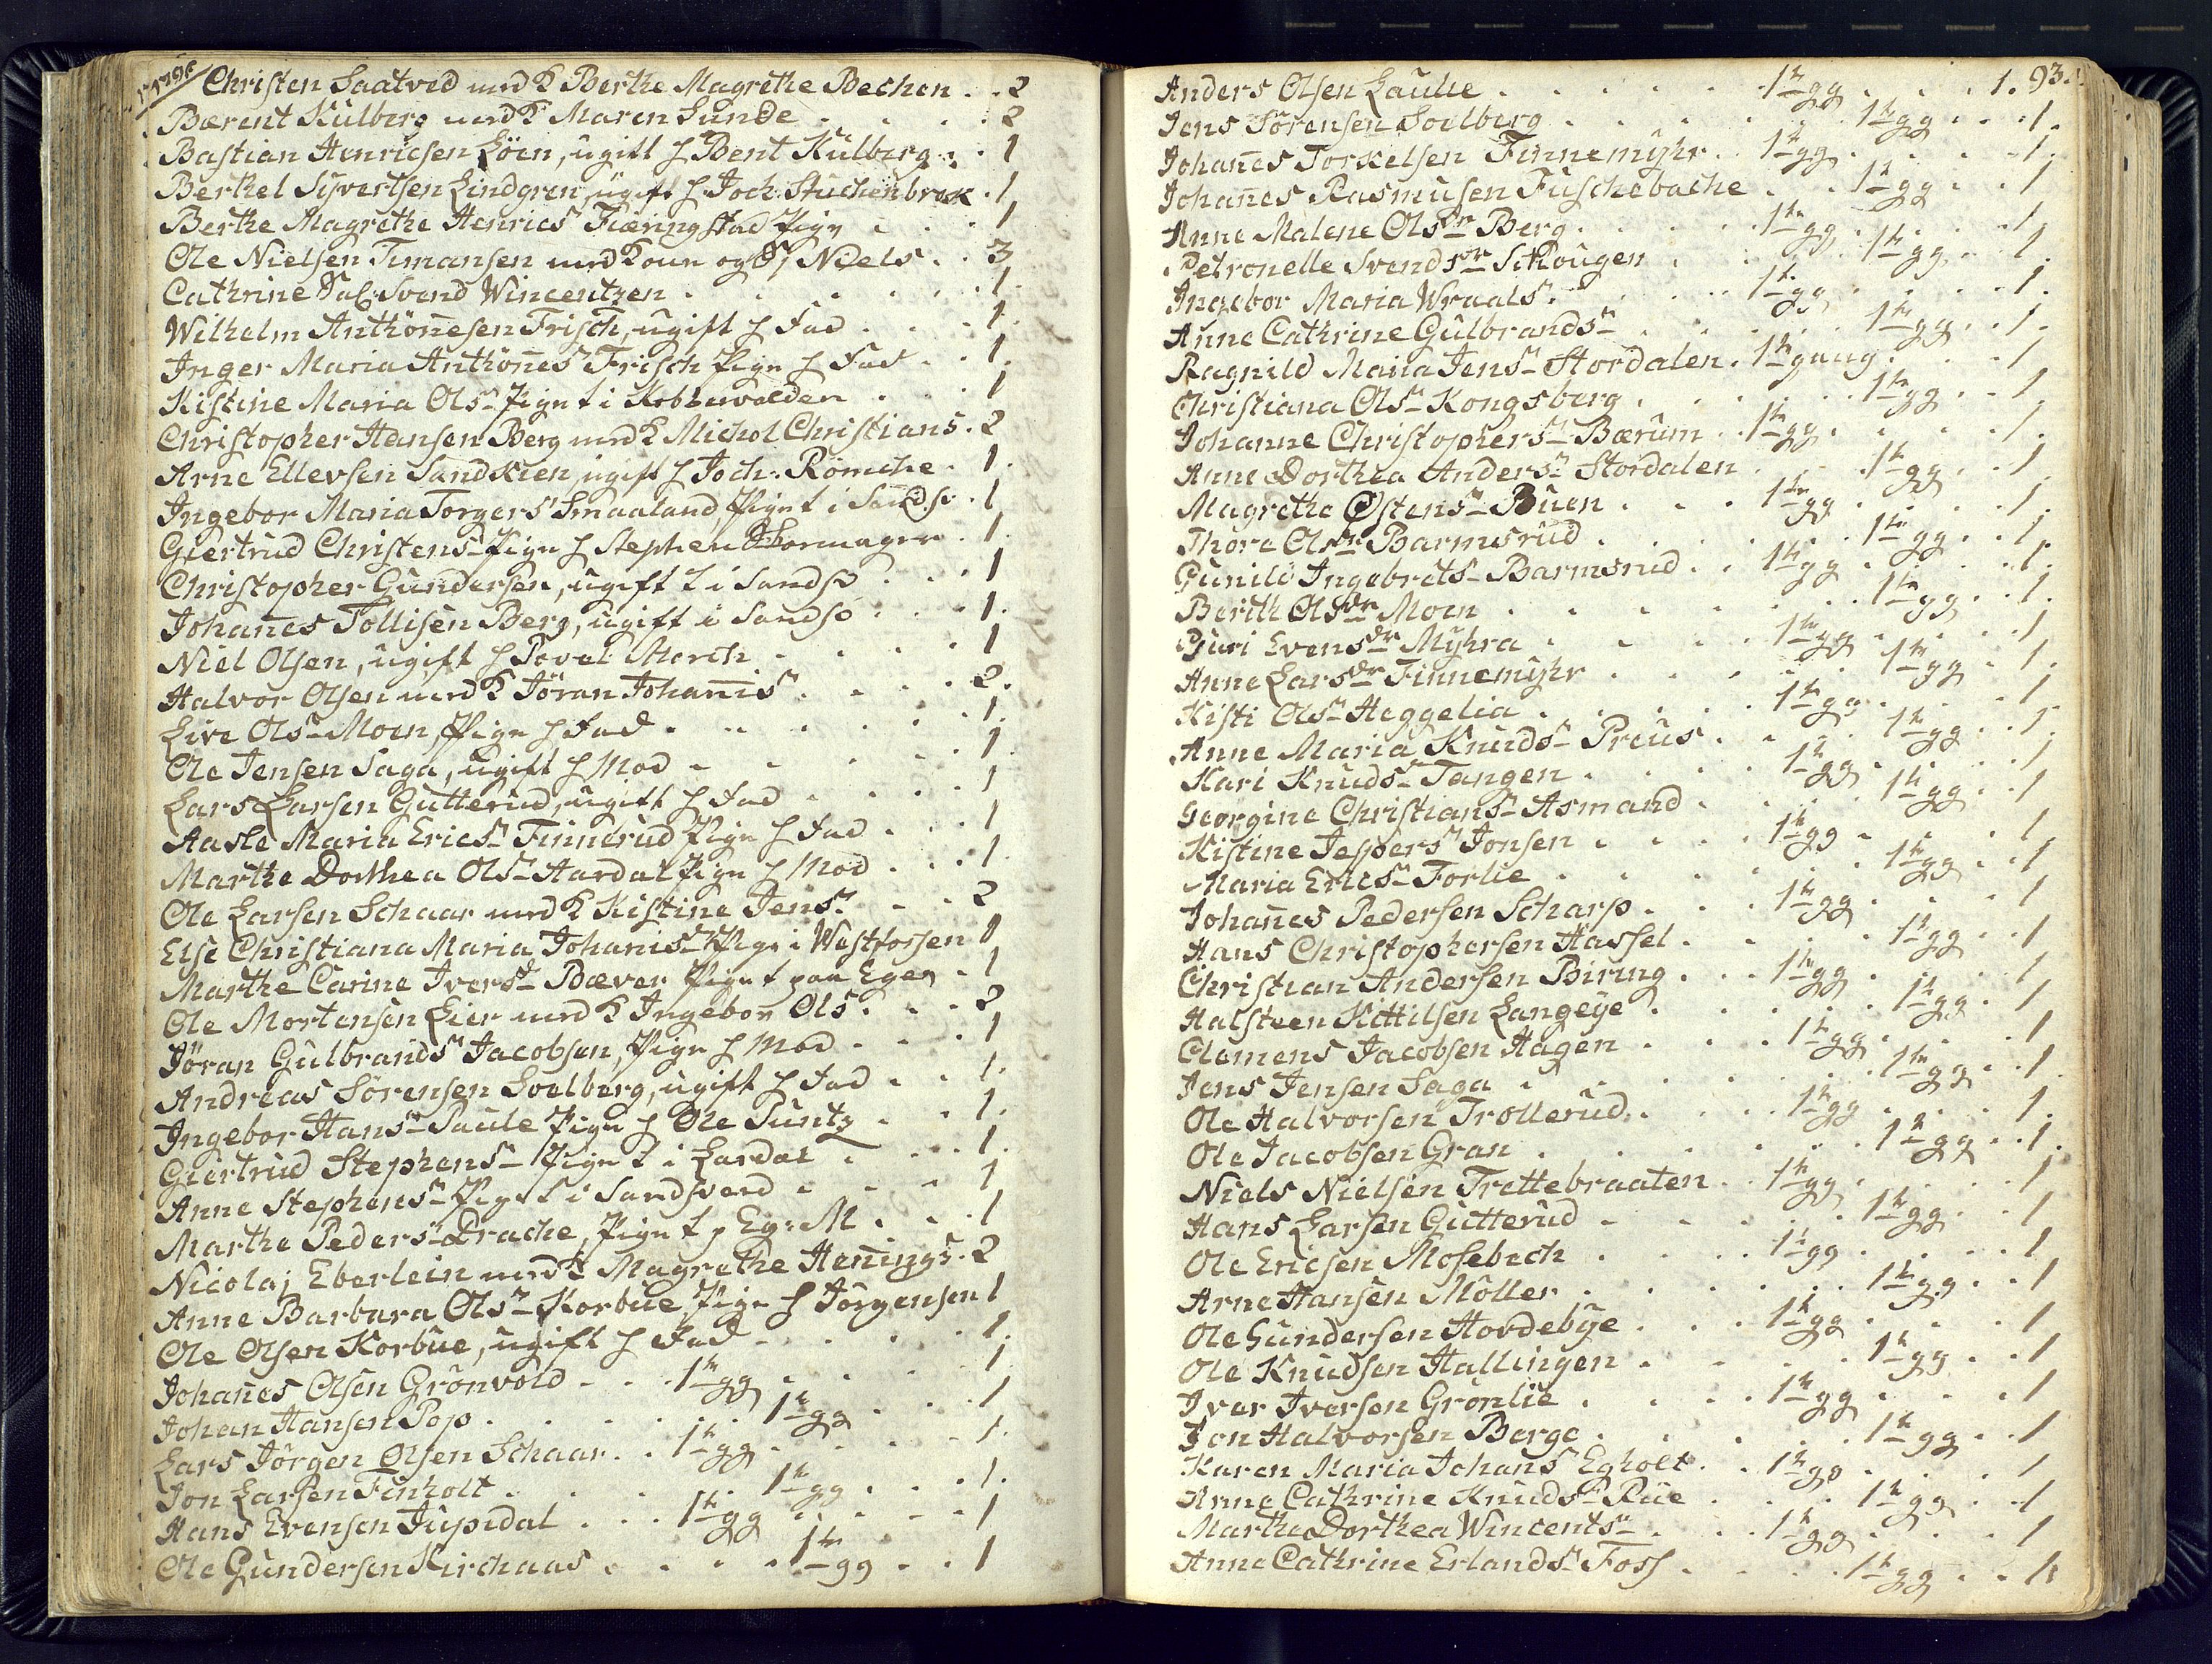 Christen Saatved med K Berthe Magrethe Bechen . . 2
Bærent Kulberg med K Maren Lunde . . . . 2
Bastian Henricsen Löen, ugift h Bent Kulberg . . 1
Berthel Syvertsen Lindgren, ugift h Joch: Stuchenbrock . 1
Berthe Magrethe Henrics Fiæringstad Pige . . . 1
Ole Nielsen Timansen med Kone og S. Niels . . 3
Cathrine Sal. Svend Wincentzen . . . . . 1
Wilhelm Anthönesen Frisch, ugift h Fad . . . 1
Inger Maria Anthönes Frisch Pige h Fad . . 1
Kistine Maria Ols Pige t i Kobbervolden . . . 1
Christopher Hansen Berg med K Michol Christians . 2
Arne Ellevsen Sandkien, ugift h Joch: Römche . 1.
Ingebor Maria Torgers Smaaland, Pige t i Sandsv . 1
Giertrud Christens Pige h Stephen . 1
Christopher Gundersen, ugift t i Sandsv . . . 1
Johañes Tollisen Berg, ugift i Sandsv . . . 1.
Niel Olsen, ugift h Povel Morch . . . . 1
Halvor Olsen med K Jöran Johañis . . . . 2.
Live Ols Moen, Pige h Fad . . . . . 1.
Ole Jensen Saga, ugift h Mod . . . . 1
Lars Larsen Gutterud, ugift h Fad . . . . 1
Aasle Maria Erics Finnerud Pige h Fad . . . 1
Marthe Dorthea Ols Aardal Pige h Mod . . . 1.
Ole Larsen Schaar med K Kistine Jens . . . 2
Else Christiana Maria Johañis Pige i Westfossen 1
Marthe Carine Ivers Bæver Pige t paa Eger . 1
Ole Mortensen Lier med K Ingebor Ols . . . 2
Jöran Gulbrands Jacobsen, Pige h Mod . . . 1
Andreas Sörensen Soelberg, ugift h Fad . . . 1.
Ingebor Hans Paule Pige h Ole Puntz . . . 1.
Giertrud Stephens Pige t i Lardal . . . . 1.
Anne Stephens Pige t i Sandsverd . . . . 1
Marthe Peders Drache, Pige t p Eg: M . . . 1
Nicolaj Eberlein med K Magrethe Heñings . 2
Anne Barbara Ols Korbue, Pige h Jörgensen 1
Ole Olsen Korbue, ugift h Fad . . . . . 1.
Johañes Olsen Grönvold . . . 1te gg . . . . 1
Johan Hansen Pop . . . . . 1te gg . . . 1
Lars Jörgen Olsen Schaar . . 1te gg . . . . 1.
Jon Larsen Finholt . . . . . 1te gg . . . 1.
Hans Evensen Jupedal . . . 1te gg . . . . 1
Ole Gundersen Kirchaas . . . . 1te gg . . 1
93.
Anders Olsen Lauhe . . . . . 1te gg . . . . 1.
Jens Sörensen Soelberg . . . . . 1te gg . . . 1.
Johañes Torkelsen Finnemyhr . . 1te gg . . . . 1.
Johañes Rasmusen Fuschebache . . . 1te gg . . 1
Anne Malene Olsdr Berg . . . . 1te gg . . . . 1.
Petronelle Svendsdr Schougen . . . . 1te gg . . 1.
Ingebor Maria Wraals . . . . 1te gg . . . . 1.
Anne Cathrine Gulbrands . . . . . 1te gg . . 1.
Ragnild Maria Jens Stordalen . 1te gaag . . . 1
Christiana Ols Kongsberg . . . . 1te gg . . 1.
Johanne Christophers Bærum . . 1te gg . . . . 1.
Anne Dorthea Anders Stordalen . . . 1te gg . . 1
Magrethe Östens Buen . . . 1te gg . . . . 1.
Thore Olsdr Barmsrud . . . . . 1te gg . . 1.
Gunild Ingebrets Barmsrud . . 1te gg . . . . 1.
Berith Olsdr Moen . . . . . . 1te gg . . 1.
Guri Evensdr Myhra . . . . . 1te gg . . . . 1
Anne Larsdr Finnemyhr . . . . . 1te gg . . 1.
Kisti Ols Heggelia . . . . . 1te gg . . . . 1
Anne Maria Knuds Preus . . . . 1te gg . . 1.
Kari Knuds Tangen . . . . 1te gg . . . . 1
Georgine Christians Asmand . . . . 1te gg . . 1
Kistine Jespers Jonsen . . . . 1te gg . . . . 1
Maria Erics Forlie . . . . . . 1te gg . . 1
Johañes Pedersen Scharp . . . 1te gg . . . . 1
Hans Christophersen Hassel . . . . 1te gg . . 1
Christian Andersen Biring . . . 1te gg . . . . 1
Halsteen Kittilsen Langeye . . . . 1te gg . . 1
Clemens Jacobsen Hagen . . . 1te gg . . . . 1
Jens Jensen Saga . . . . . . 1te gg . . 1.
Ole Halvorsen Trollerud . . . 1te gg . . . . 1.
Ole Jacobsen Gran . . . . . . 1te gg . . 1.
Niels Nielsen Trettebraaten . . 1te gg . . . . 1
Hans Larsen Gutterud . . . . . 1te gg . . 1
Ole Ericsen Mosebech . . . . 1te gg . . . . 1
Arne Hansen Möller . . . . . . 1te gg . . 1
Ole Gundersen Hordebye . . . 1te gg . . . . 1
Ole Knudsen Hallingen . . . . . 1te gg . . 1
Iver Iversen Grönlie . . . . 1te gg . . . . 1
Jon Halvorsen Berge . . . . . 1te gg . . 1
Karen Maria Johans Egholt . . 1te gg . . . . 1
Anne Cathrine Knuds Rue . . . . 1te gg . . 1
Marthe Dorthea Wincents . . . 1te gg . . . . 1
Anne Cathrine Erlands Foss . . . . 1te gg . . 1